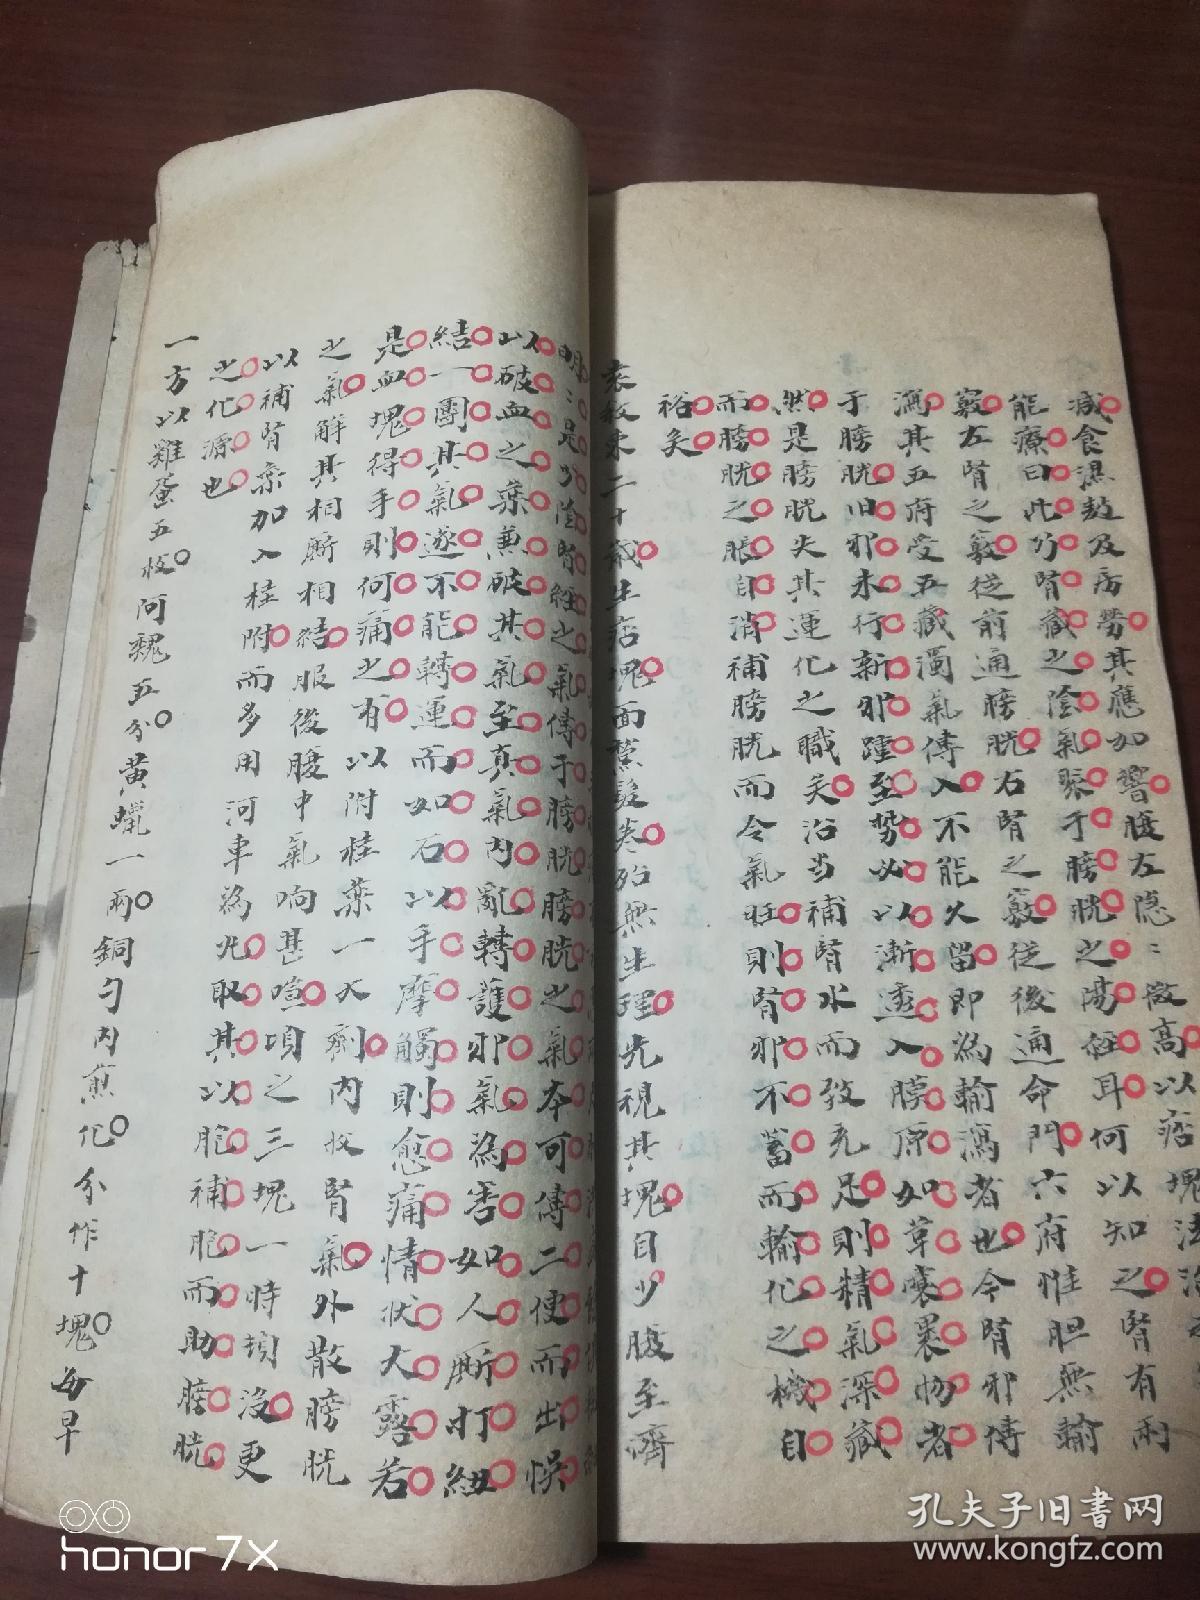 減食濕鼓及房勞其應如響腹左隱：微高以痞塊法治
能療曰此乃腎藏之陰氣聚于膀胱之陽經耳何以知之腎有兩
竅左腎之竅從前通膀胱右腎之竅從後通命門六府惟胆無輸
瀉其五府受五藏濁氣傳入不能久留即為輸瀉者也今腎邪傳
于膀胱旧邪未行新邪踵至勢必以漸透入膜原如革囊裹物者
然是膀胱失其運化之職矣治当補腎水而致充足則精氣深藏
而膀胱之脹自消補膀胱而令氣旺則腎邪不蓄而輸化之機自
裕矣
袁 東二十歲生痞塊面黧髮 殆無生理先視其塊自少腹至臍
明：是少陰腎經之氣傳于膀胱膀胱之氣本可傳二便而出悮
以破血之藥兼破其氣至真氣內亂轉護邪氣為害如人厮打紐
結一團其氣遂不能轉運而如石以手摩觸則愈痛情狀大露若
是血塊得手則何痛之有以附桂藥一大劑內收腎氣外散膀胱
之氣解其相厮相結服後腹中氣响甚喧頃之三塊一時頓沒更
以補腎藥加入桂附而多用河車為丸取其以胞補胞而助膀胱
之化源也
一方以雞蛋五枚阿魏五分黃蠟一兩銅勺內煎化分作十塊每早
honor 7X
孔夫子旧书网
www.kongfz.com